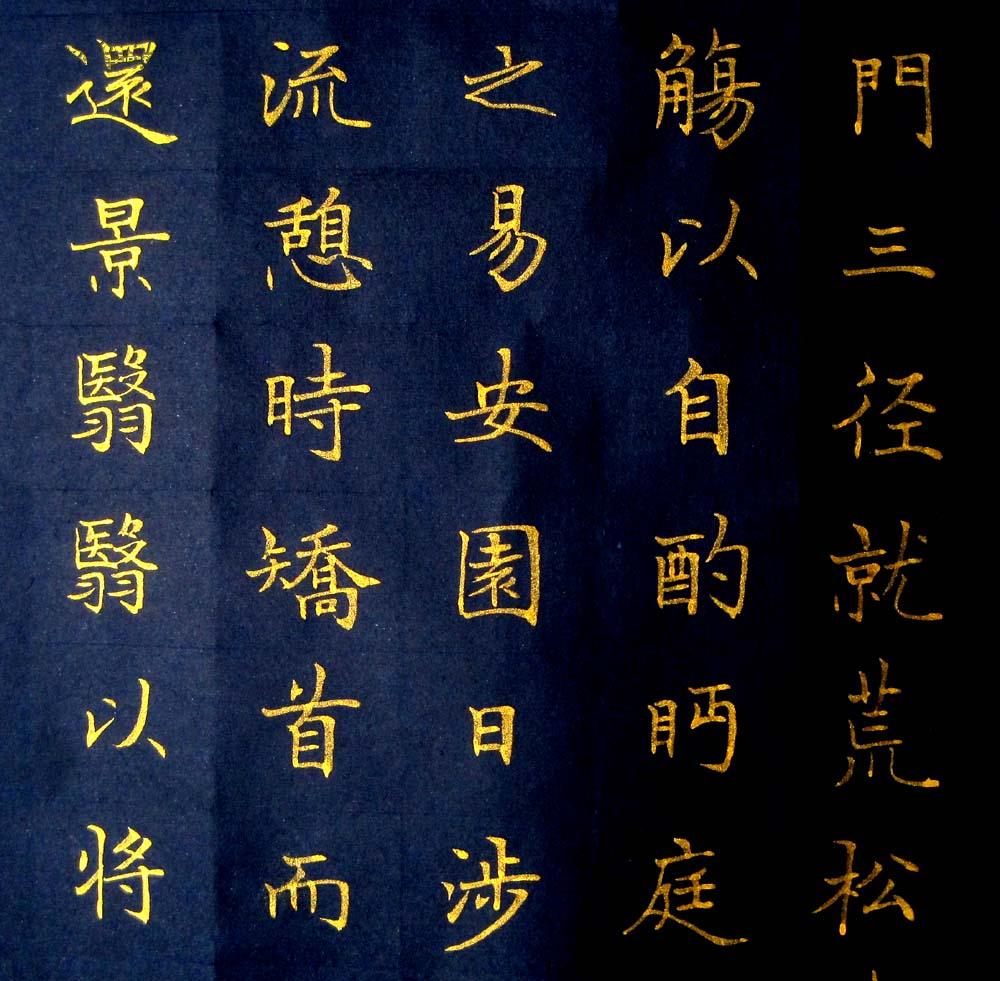 門三径就荒松
觴以自酌眄庭
之易安園日涉
流憩時矯首而
還景翳翳以将